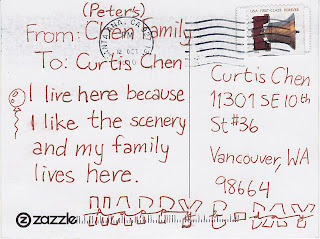 (Peter's)
From: Chen Family
To: Curtis Chen
I live here because
I like the scenery
and my family
lives here.
zazzle
HAPPY B-DAY
USA FIRST-CLASS FOREVER
Curtis Chen
11301 SE 10th
St #36
Vancouver, WA
98664